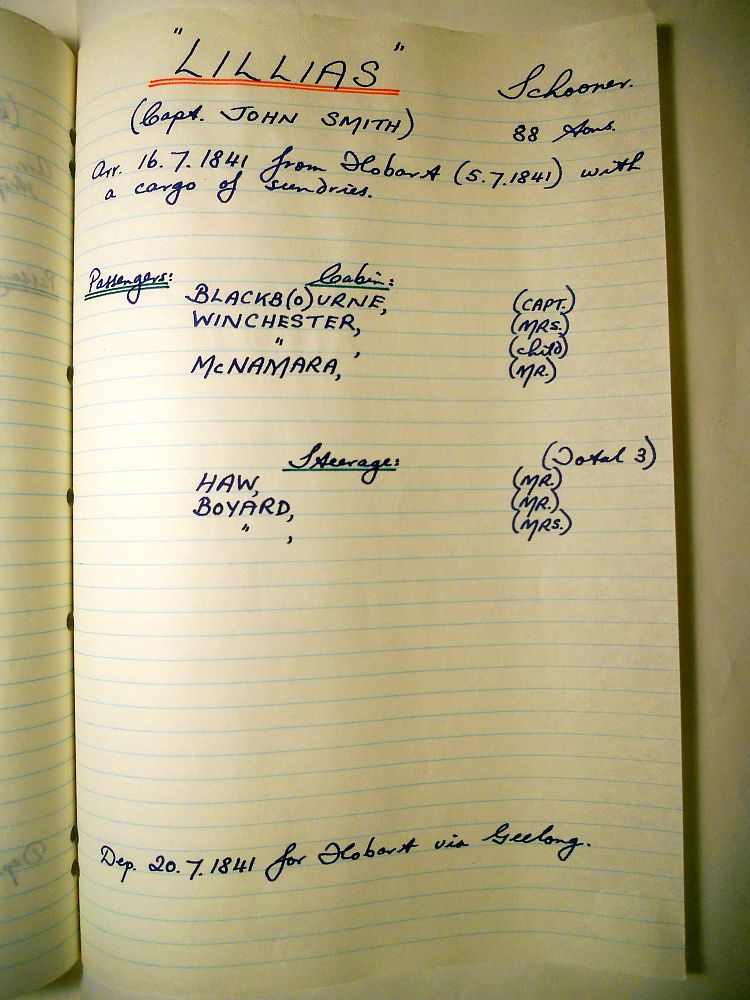 "LILLIAS" Schooner.
(Capt. JOHN SMITH) 88 tons.
Arr. 16.7.1841 from Hobart (5.7.1841) with
a cargo of sundries.
Passengers: Cabin:
BLACKB(O)URNE, (CAPT.)
WINCHESTER, (MRS.)
" , (child)
McNAMARA, (MR.)
Steerage: (Total 3)
HAW, (MR.)
BOYARD, (MR.)
" , (MRS.)
Dep. 20.7.1841 for Hobart via Geelong.